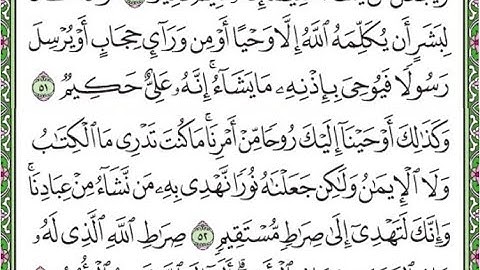 لِبَشَرٍ أَن يُكَلِّمَهُ ٱللَّهُ إِلَّا وَحْيًا أَوْ مِن وَرَآيِٕ حِجَابٍ أَوْ يُرْسِلَ
رَسُولًا فَيُوحِيَ بِإِذْنِهِۦ مَا يَشَآءُ ۚ إِنَّهُۥ عَلِيٌّ حَكِيمٌ ٥١
وَكَذَٰلِكَ أَوْحَيْنَآ إِلَيْكَ رُوحًا مِّنْ أَمْرِنَا ۚ مَا كُنتَ تَدْرِى مَا ٱلْكِتَٰبُ
وَلَا ٱلْإِيمَٰنُ وَلَٰكِن جَعَلْنَٰهُ نُورًا نَّهْدِى بِهِۦ مَن نَّشَآءُ مِنْ عِبَادِنَا ۚ
وَإِنَّكَ لَتَهْدِىٓ إِلَىٰ صِرَٰطٍ مُّسْتَقِيمٍ ٥٢ صِرَٰطِ ٱللَّهِ ٱلَّذِى لَهُۥ